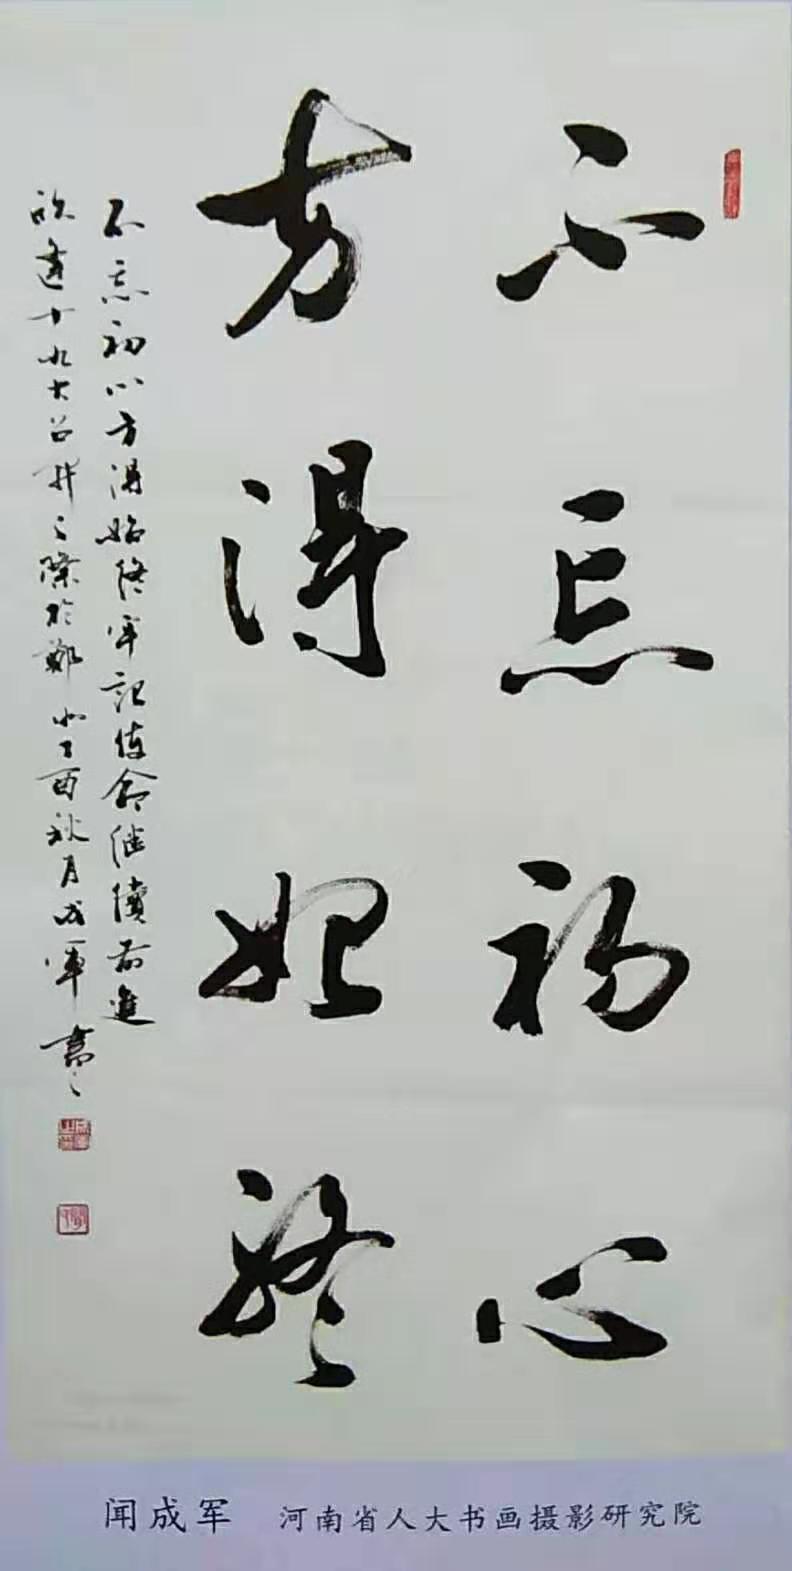 不忘初心
方得始终
不忘初心方得始终牢记使命继续前进
欣逢十九大召开之际於鄭州丁酉秋月成軍書
闻成军 河南省人大书画摄影研究院